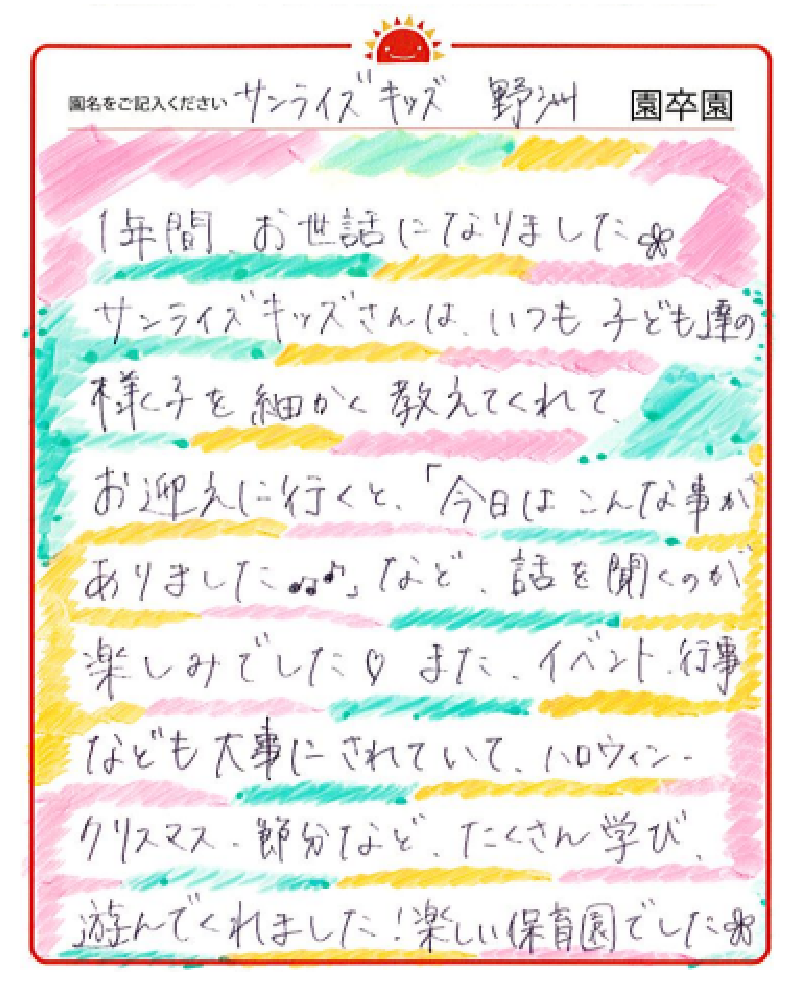 園名をご記入ください サンライズキッズ 野洲 園卒園
1年間、お世話になりました
サンライズキッズさんは、いつも子ども達の
様子を細かく教えてくれて、
お迎えに行くと、「今日はこんな事が
ありました♪♪」など、話を聞くのが
楽しみでした♡ また、イベント、行事
なども大事にされていて、ハロウィン・
クリスマス・節分など、たくさん学び、
遊んでくれました！楽しい保育園でした